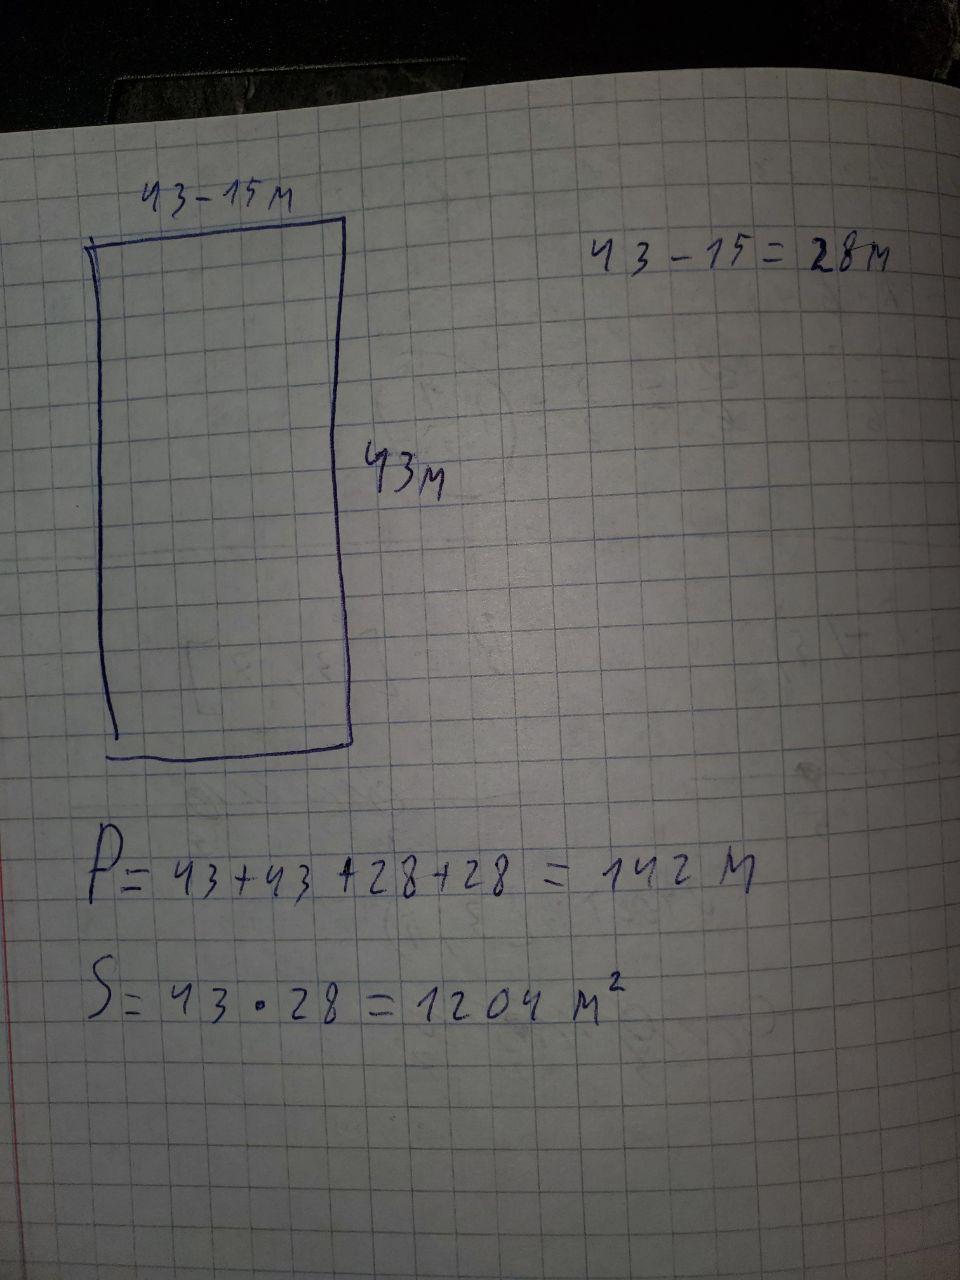 43-15м
43-15=28м
43м
P=43+43+28+28=142 м
S=43·28=1204 м²